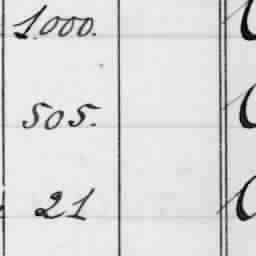 1.000.
505.
21